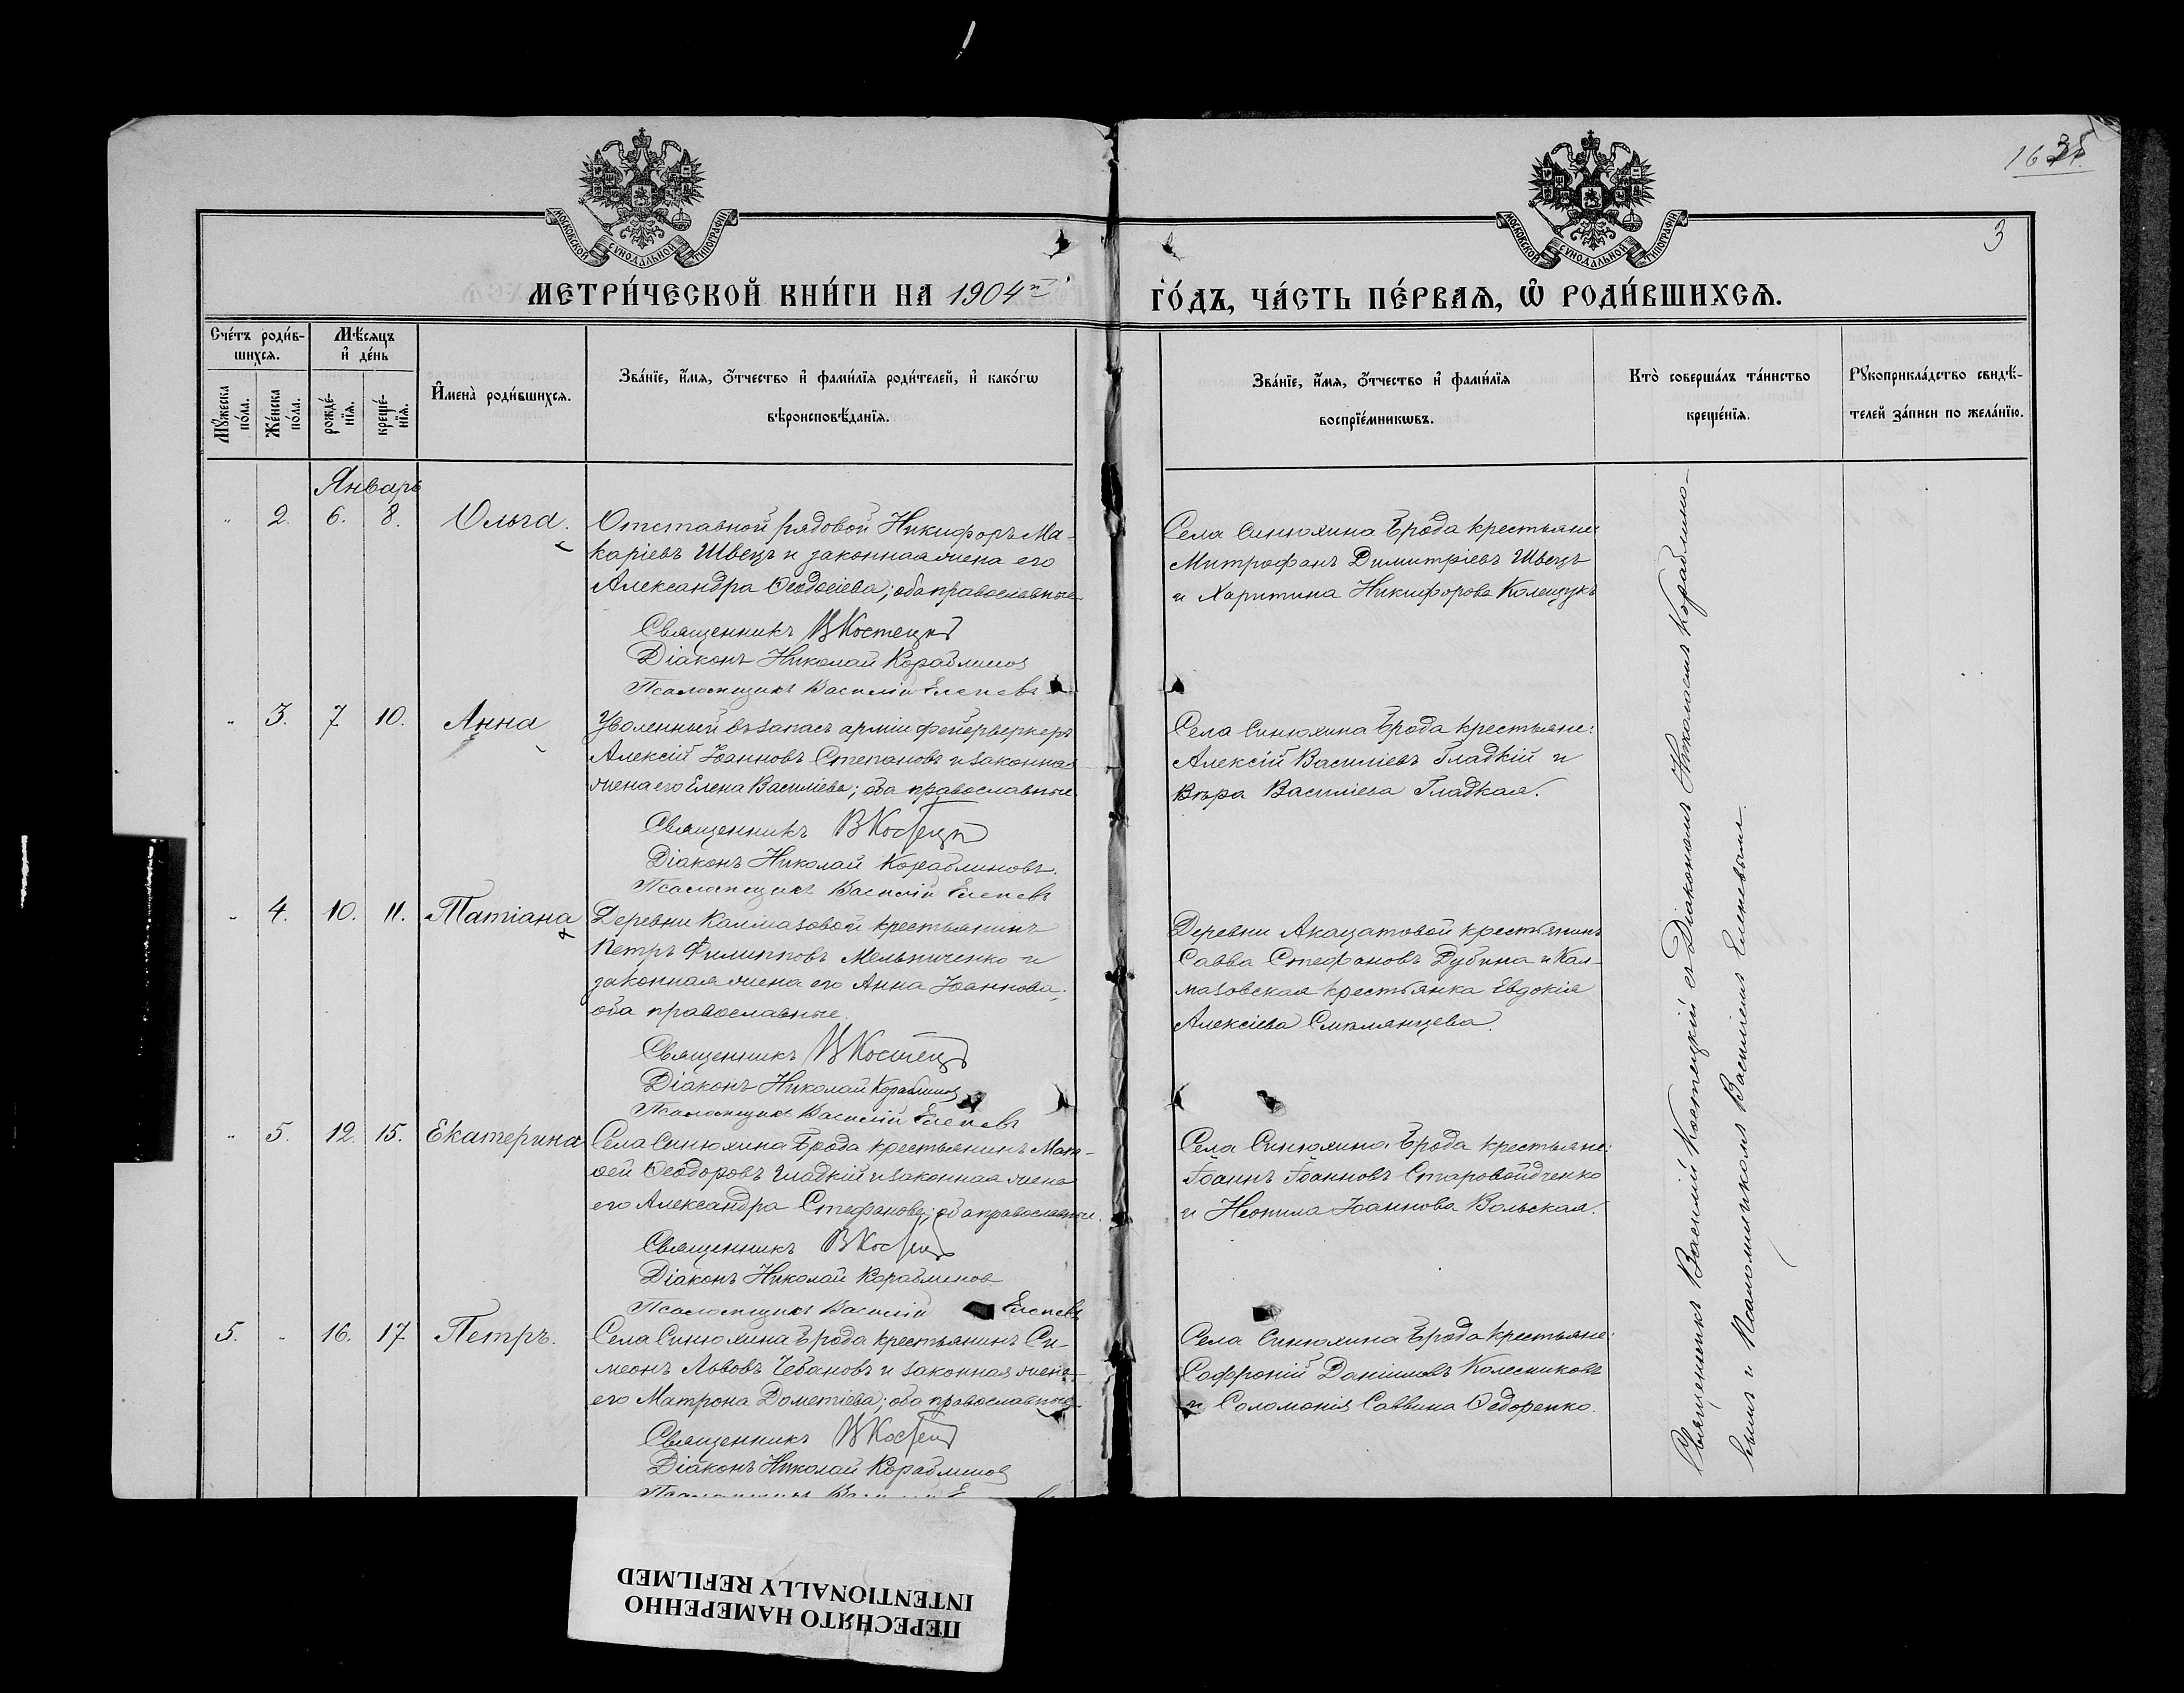 1635
3
МОСКОВСКОЙ СУНОДАЛЬНОЙ ТИПОГРАФІИ
МОСКОВСКОЙ СУНОДАЛЬНОЙ ТИПОГРАФІИ
МЕТРИ́ЧЕСКОЙ КНИ́ГИ НА 1904й
ГО́ДЪ, ЧА́СТЬ ПЕ́РВАЯ, Ѡ РОДИ́ВШИХСЯ.
Сче́тъ роди́в-
шихся.
Мꙋ́жеска
по́ла.
Же́нска
по́ла.
Мѣ́сяцъ
и҆ де́нь
рожде́-
нїя.
креще́-
нїя.
И҆мена̀ роди́вшихся.
Зва́нїе, и҆́мя, ѻ҆́тчество и҆ фами́лїя роди́телей, и҆ како́гѡ
вѣроисповѣ́данїя.
Зва́нїе, и҆́мя, ѻ҆́тчество и҆ фами́лїя
воспрїе́мникѡвъ.
Кто̀ соверша́лъ та́инство
креще́нїя.
Рꙋкоприкла́дство свидѣ́-
телей за́писи по жела́нїю.
Январь
" 2. 6. 8. Ольга.
Отставной рядовой Никифоръ Ма-
каріевъ Швецъ и законная жена его
Александра Ѳеодосіева; оба православные
Священникъ В Костецкій
Діаконъ Николай Кораблиновъ
Псаломщикъ Василій Елепевъ
Села Синюхина Брода крестьяне:
Митрофанъ Димитріевъ Швецъ
и Харитина Никифорова
" 3. 7 10. Анна
Уволенный въ запасъ арміи фейерверкеръ
Алексій Іоанновъ Степановъ и законная
жена его Елена Василіева; оба православные
Священникъ В Костецкій
Діаконъ Николай Кораблиновъ.
Псаломщикъ Василій Елепевъ
Села Синюхина Брода крестьяне:
Алексій Василіевъ Гладкій и
Вѣра Василіева Гладкая.
" 4. 10. 11. Татіана
Деревни Калмазовой крестьянинъ
Петръ Филипповъ Мельниченко и
законная жена его Анна Іоаннова,
оба православные.
Священникъ В Костецкій
Діаконъ Николай Кораблиновъ
Псаломщикъ Василій Елепевъ
Деревни Акацатовой крестьянинъ
Савва Стефановъ Дубина и Кал-
мазовская крестьянка Евдокія
Алексіева
" 5. 12. 15. Екатерина
Села Синюхина Брода крестьянинъ Мат-
ѳей Ѳеодоровъ Гладкій и законная жена
его Александра Стефанова; оба православные.
Священникъ В Костецкій
Діаконъ Николай Кораблиновъ
Псаломщикъ Василій Елепевъ
Села Синюхина Брода крестьяне:
Іоаннъ Іоанновъ Старовойдченко
и Неонила Іоаннова Вольская.
5. " 16. 17 Петръ.
Села Синюхина Брода крестьянинъ Си-
меонъ Львовъ Чебановъ и законная жена
его Матрона Дометіева; оба православные
Священникъ В Костецкій
Діаконъ Николай Кораблиновъ
Псаломщикъ Василій
Села Синюхина Брода крестьяне:
Софроній Даніиловъ Колесниковъ
и Соломонія Саввина Ѳедоренко.
Священникъ Василій Костецкій съ Діакономъ Николаемъ Кораблино-
вымъ и Псаломщикомъ Василіемъ Елепевымъ
ПЕРЕСНЯТО НАМЕРЕННО
INTENTIONALLY REFILMED